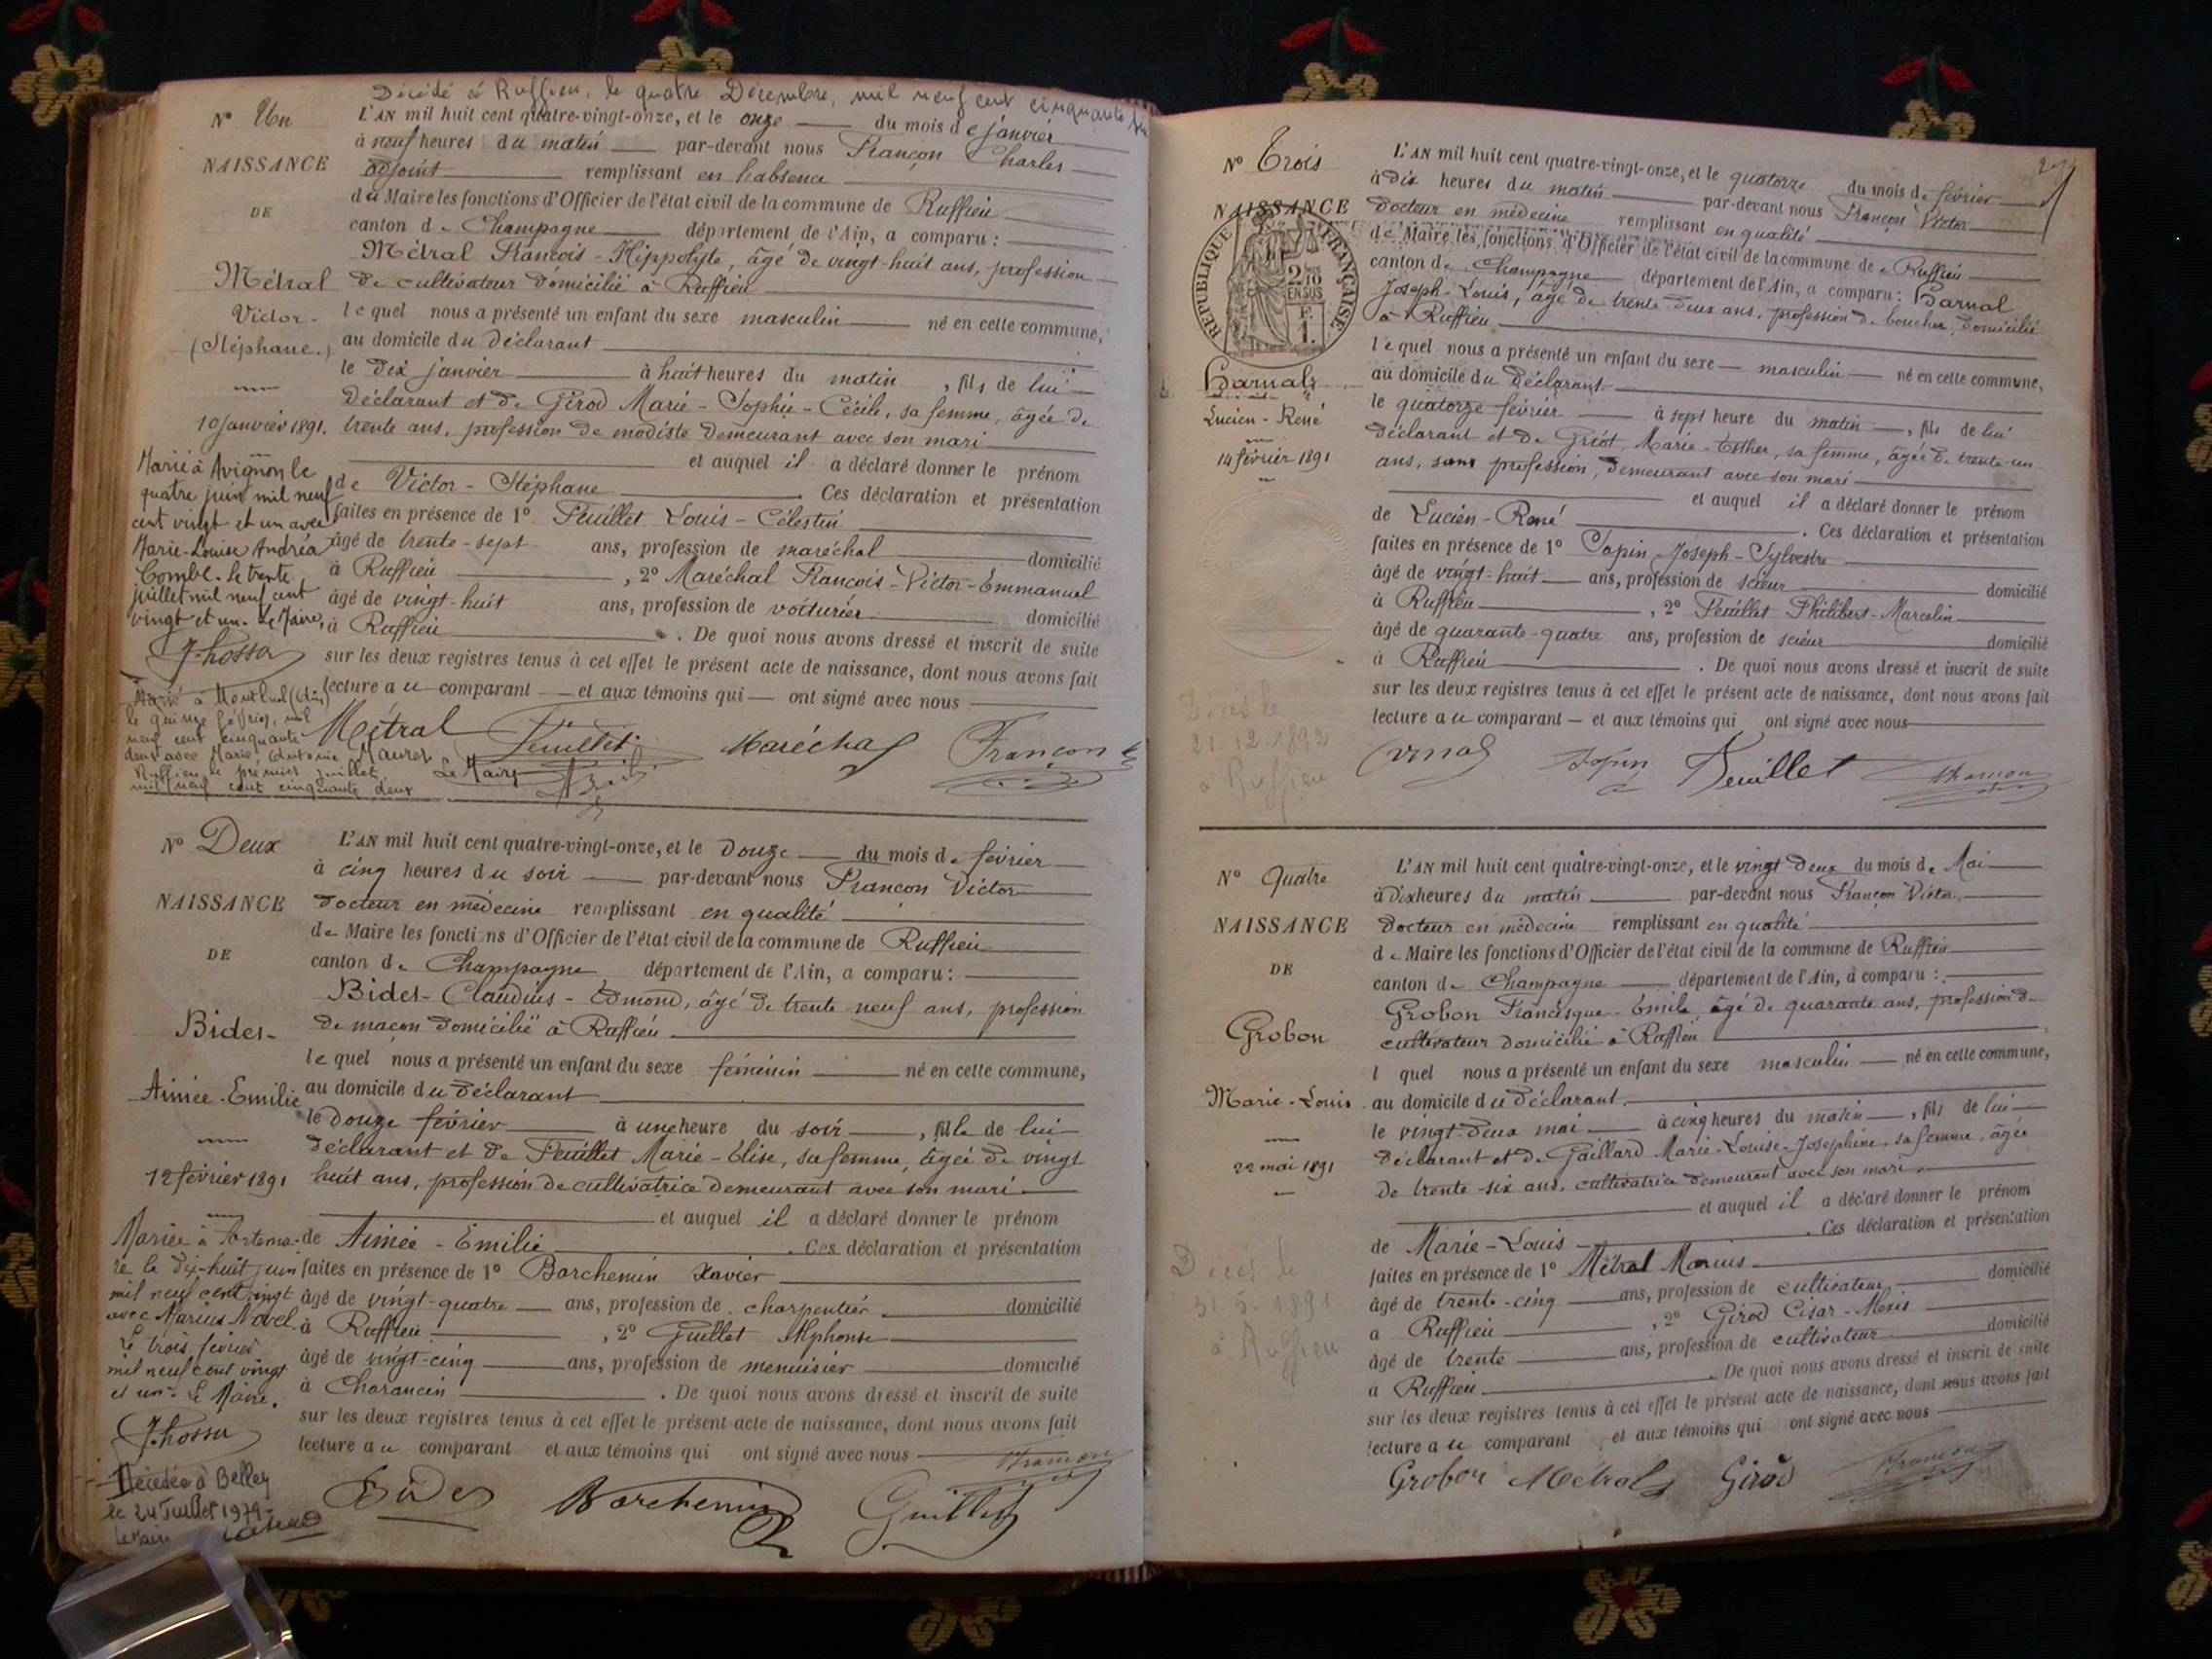 Décédé à Ruffieu, le quatre Décembre, mil neuf cent cinquante
N° Un
NAISSANCE
DE
Métral
Victor-
(Stéphane.)
10 janvier 1891.
L'AN mil huit cent quatre-vingt-onze, et le onze du mois de janvier
à neuf heures du matin par-devant nous Françon Charles
adjoint remplissant en l'absence
du Maire les fonctions d'Officier de l'état civil de la commune de Ruffieu
canton de Champagne département de l'Ain, a comparu :
Métral François-Hippolyte, âgé de vingt-huit ans, profession
de cultivateur domicilié à Ruffieu
lequel nous a présenté un enfant du sexe masculin né en cette commune,
au domicile du déclarant
le dix janvier à huit heures du matin, fils de lui
déclarant et de Girod Marie-Sophie-Cécile, sa femme, âgée de
trente ans, profession de modiste demeurant avec son mari
et auquel il a déclaré donner le prénom
de Victor-Stéphane. Ces déclaration et présentation
faites en présence de 1° Feuillet Louis-Célestin
âgé de trente-sept ans, profession de maréchal domicilié
à Ruffieu, 2° Maréchal François-Victor-Emmanuel
âgé de vingt-huit ans, profession de voiturier domicilié
à Ruffieu. De quoi nous avons dressé et inscrit de suite
sur les deux registres tenus à cet effet le présent acte de naissance, dont nous avons fait
lecture au comparant et aux témoins qui ont signé avec nous
Métral Feuillet Maréchal Françon
Marié à Avignon le
quatre juin mil neuf
cent vingt et un avec
Marie-Louise Andréa
Combe. Le trente
juillet mil neuf cent
vingt et un. Le Maire,
Marié à Montluel (Ain)
le quinze février, mil
neuf cent cinquante
deux avec Marie Antonia Maurer
Ruffieu le premier juillet
mil neuf cent cinquante deux
Le Maire
N° Deux
NAISSANCE
DE
Bidet-
Aimée-Emilie
12 février 1891
L'AN mil huit cent quatre-vingt-onze, et le douze du mois de février
à cinq heures du soir par-devant nous Françon Victor
docteur en médecine remplissant en qualité
de Maire les fonctions d'Officier de l'état civil de la commune de Ruffieu
canton de Champagne département de l'Ain, a comparu :
Bidet-Claudius-Edmond, âgé de trente neuf ans, profession
de maçon domicilié à Ruffieu
lequel nous a présenté un enfant du sexe féminin né en cette commune,
au domicile du déclarant
le douze février à une heure du soir, fille de lui
déclarant et de Feuillet Marie-Elise, sa femme, âgée de vingt
huit ans, profession de cultivatrice demeurant avec son mari
et auquel il a déclaré donner le prénom
de Aimée-Emilie. Ces déclaration et présentation
faites en présence de 1° Barchemin Xavier
âgé de vingt-quatre ans, profession de charpentier domicilié
à Ruffieu, 2° Guillet Alphonse
âgé de vingt-cinq ans, profession de menuisier domicilié
à Charancin. De quoi nous avons dressé et inscrit de suite
sur les deux registres tenus à cet effet le présent acte de naissance, dont nous avons fait
lecture au comparant et aux témoins qui ont signé avec nous
Bidet Barchemin Guillet Françon
Mariée à Artema-
re le dix-huit juin
mil neuf cent vingt
avec Marius Novel.
Le trois février
mil neuf cent vingt
et un. Le Maire.
Décédée à Belley
le 24 Juillet 1979
Le Maire
N° Trois
NAISSANCE
RÉPUBLIQUE FRANÇAISE
2/10
EN SUS
Harnal
Lucien-René
14 février 1891
L'AN mil huit cent quatre-vingt-onze, et le quatorze du mois de février
à dix heures du matin par-devant nous Françon Victor
docteur en médecine remplissant en qualité
de Maire les fonctions d'Officier de l'état civil de la commune de Ruffieu
canton de Champagne département de l'Ain, a comparu : Harnal
Joseph-Louis, âgé de trente deux ans, profession de boucher, domicilié
à Ruffieu
lequel nous a présenté un enfant du sexe masculin né en cette commune,
au domicile du déclarant
le quatorze février à sept heure du matin, fils de lui
déclarant et de Griot Marie-Esther, sa femme, âgée de trente-un
ans, sans profession, demeurant avec son mari
et auquel il a déclaré donner le prénom
de Lucien-René. Ces déclaration et présentation
faites en présence de 1° Sapin Joseph-Sylvestre
âgé de vingt-huit ans, profession de scieur domicilié
à Ruffieu, 2° Feuillet Philibert-Marcelin
âgé de quarante-quatre ans, profession de scieur domicilié
à Ruffieu. De quoi nous avons dressé et inscrit de suite
sur les deux registres tenus à cet effet le présent acte de naissance, dont nous avons fait
lecture au comparant et aux témoins qui ont signé avec nous
Sapin Feuillet Françon
Décès le
21-12-1892
à Ruffieu
N° Quatre
NAISSANCE
DE
Grobon
Marie-Louis
22 mai 1891
L'AN mil huit cent quatre-vingt-onze, et le vingt deux du mois de Mai
à dix heures du matin par-devant nous Françon Victor,
docteur en médecine remplissant en qualité
de Maire les fonctions d'Officier de l'état civil de la commune de Ruffieu
canton de Champagne département de l'Ain, a comparu :
Grobon Francisque-Emile, âgé de quarante ans, profession de
cultivateur domicilié à Ruffieu
l quel nous a présenté un enfant du sexe masculin né en cette commune,
au domicile du déclarant
le vingt-deux mai à cinq heures du matin, fils de lui
déclarant et de Gaillard Marie-Louise-Josephine, sa femme, âgée
de trente-six ans, cultivatrice demeurant avec son mari.
et auquel il a déclaré donner le prénom
de Marie-Louis. Ces déclaration et présentation
faites en présence de 1° Métral Marius
âgé de trente-cinq ans, profession de cultivateur, domicilié
à Ruffieu, 2° Girod César-Alexis
âgé de trente ans, profession de cultivateur domicilié
à Ruffieu. De quoi nous avons dressé et inscrit de suite
sur les deux registres tenus à cet effet le présent acte de naissance, dont nous avons fait
lecture au comparant et aux témoins qui ont signé avec nous
Grobon Métral Girod Françon
Décès le
31-5-1891
à Ruffieu